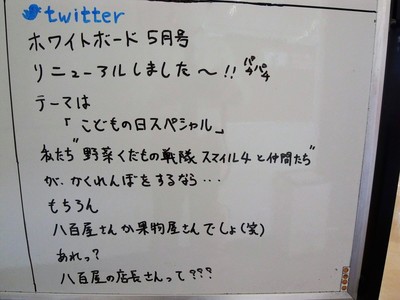 twitter
ホワイトボード 5月号
リニューアルしました〜!! パチパチ
テーマは
「こどもの日スペシャル」
私たち"野菜くだもの戦隊 スマイル4 と仲間たち"
が、かくれんぼをするなら・・・
もちろん
八百屋さんか果物屋さんでしょ(笑)
あれっ?
八百屋の店長さんって???